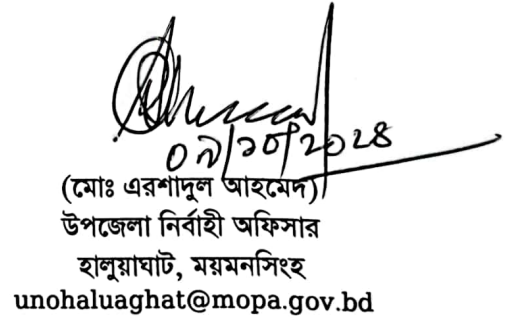 ০৯/১০/২০২৪
(মোঃ এরশাদুল আহমেদ)
উপজেলা নির্বাহী অফিসার
হালুয়াঘাট, ময়মনসিংহ
unohaluaghat@mopa.gov.bd